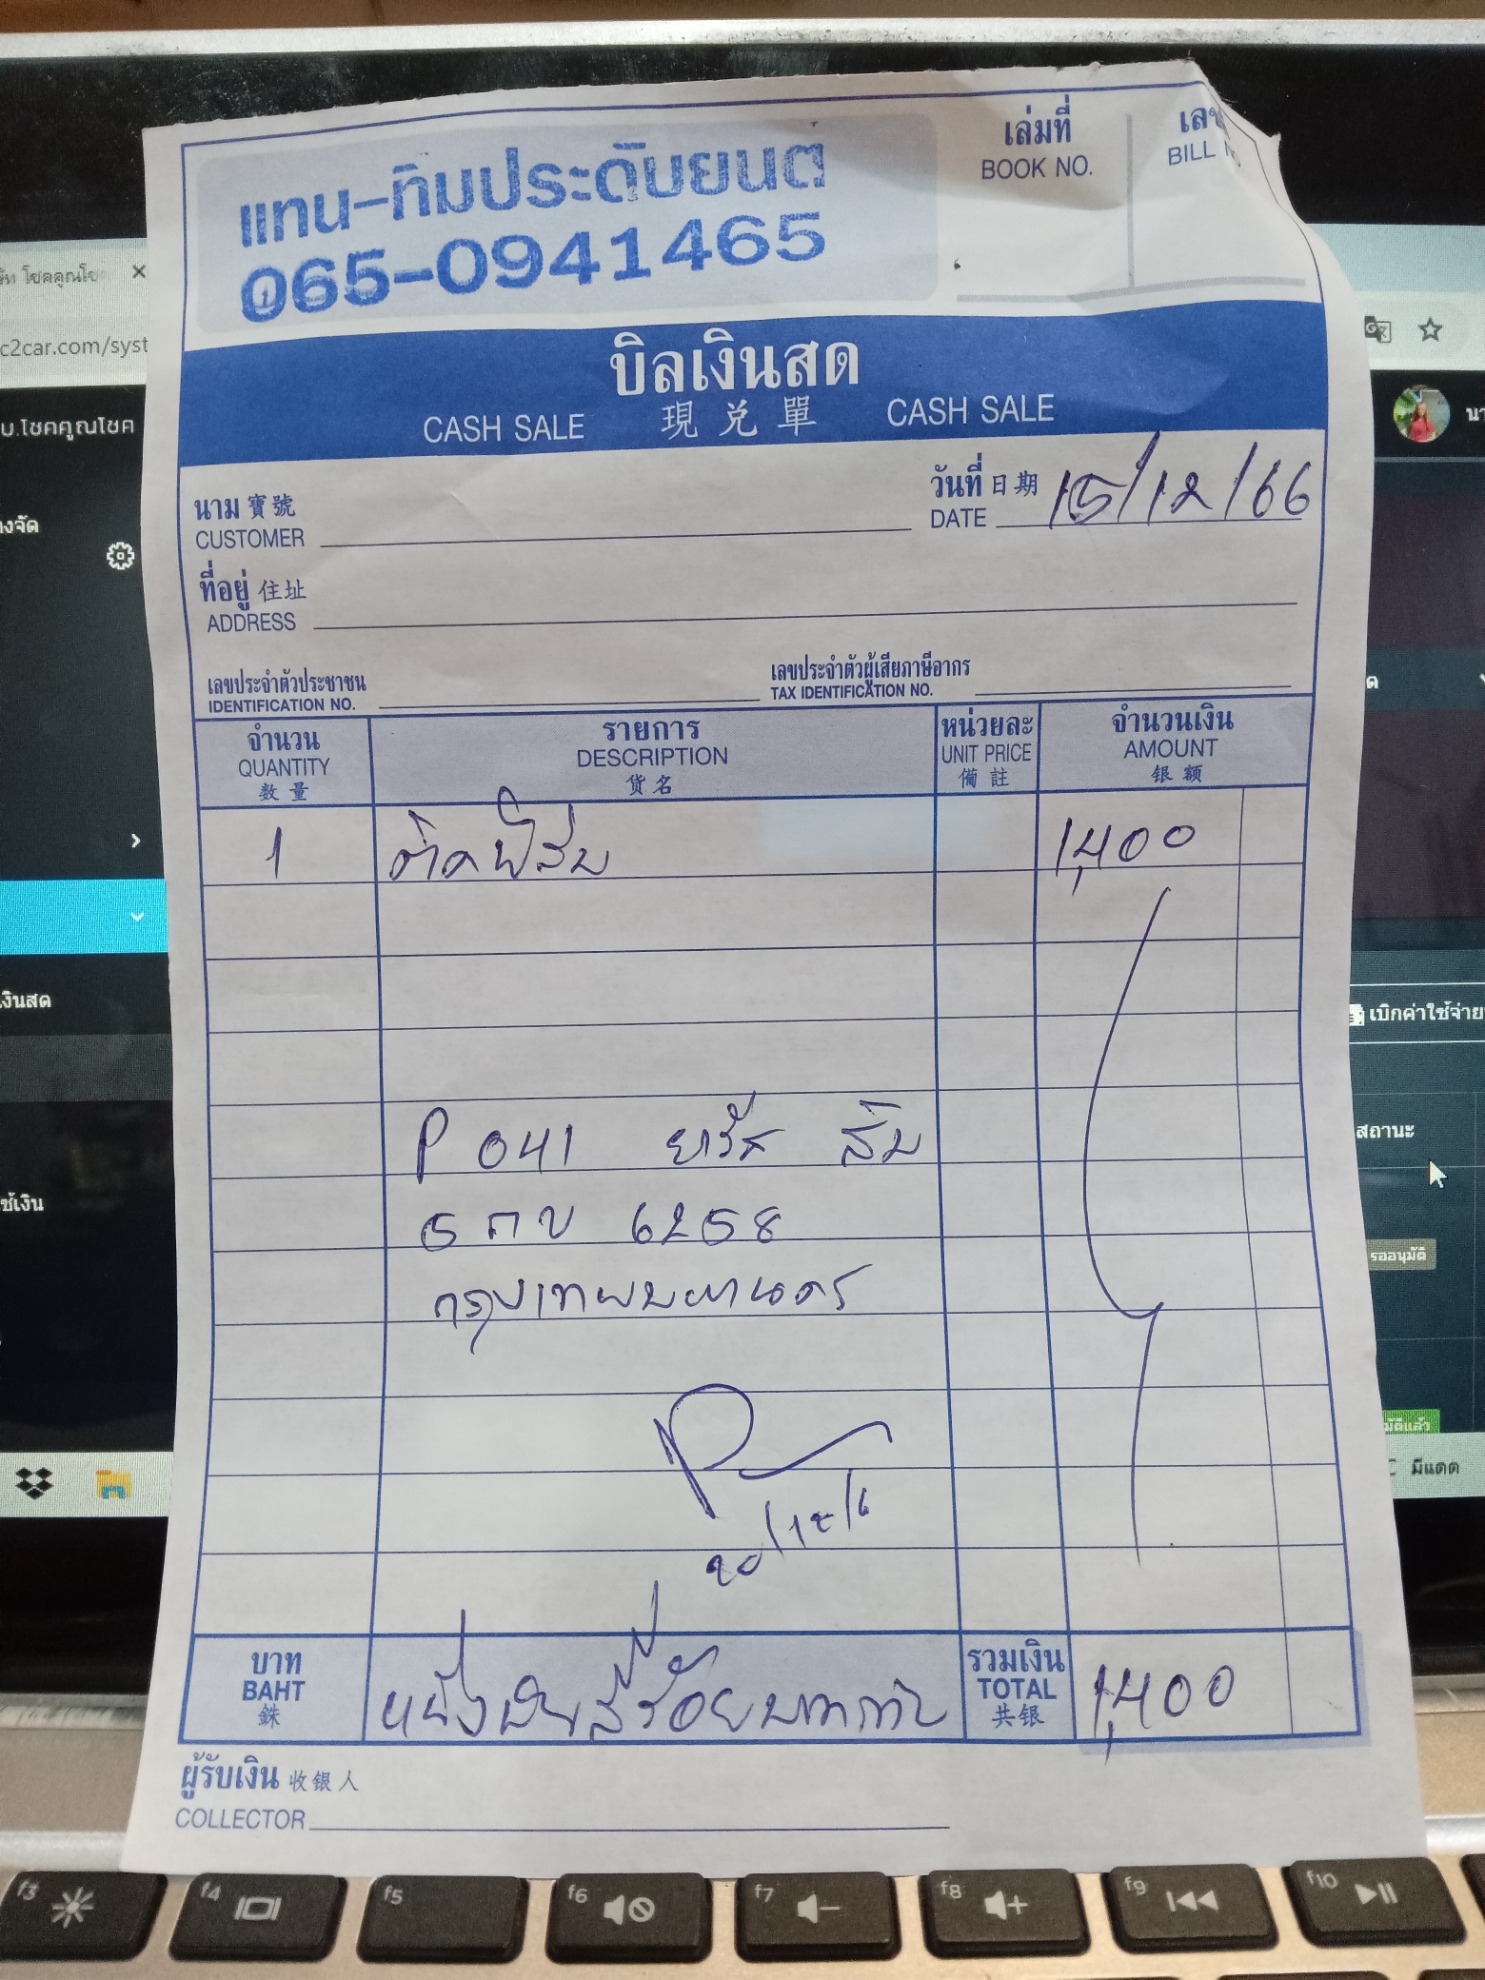 แทน-ทิมประดับยนต์
065-0941465
เล่มที่
BOOK NO.
BILL
บิลเงินสด
CASH SALE 現兌單 CASH SALE
นาม 寶號
CUSTOMER
วันที่ 日期 15/12/66
DATE
ที่อยู่ 住址
ADDRESS
เลขประจำตัวประชาชน
IDENTIFICATION NO.
เลขประจำตัวผู้เสียภาษีอากร
TAX IDENTIFICATION NO.
จำนวน รายการ หน่วยละ จำนวนเงิน
QUANTITY DESCRIPTION UNIT PRICE AMOUNT
数量 货名 備註 银额
1 ติดฟิล์ม 1,400
P 041 ยาริส ส้ม
5 กข 6258
กรุงเทพมหานคร
20/12/6
บาท หนึ่งพันสี่ร้อยบาทถ้วน รวมเงิน 1,400
BAHT TOTAL
銖 共银
ผู้รับเงิน 收银人
COLLECTOR
c2car.com/syst
บ.โชคคูณโชค
เบิกค่าใช้จ่าย
สถานะ
รออนุมัติ
มีแดด
f3 f4 f5 f6 f7 f8 f9 f10